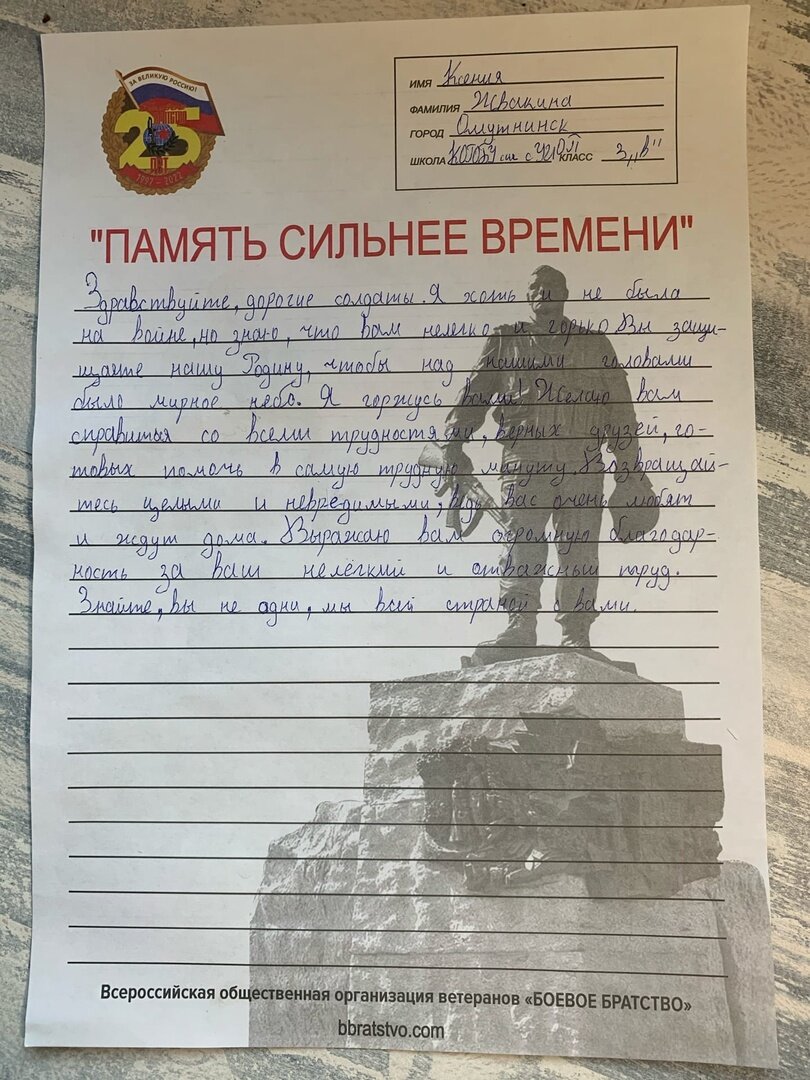 ЗА ВЕЛИКУЮ РОССИЮ!
25
ЛЕТ
1997 - 2022
ИМЯ Ксения
ФАМИЛИЯ Жвакина
ГОРОД Омутнинск
ШКОЛА КОГОБУ сш с УИОП КЛАСС 3 „в"
"ПАМЯТЬ СИЛЬНЕЕ ВРЕМЕНИ"
Здравствуйте, дорогие солдаты. Я хоть и не была
на войне, но знаю, что вам нелегко и горько Вы защи-
щаете нашу Родину, чтобы над нашими головами
было мирное небо. Я горжусь вами! Желаю вам
справиться со всеми трудностями, верных друзей, го-
товых помочь в самую трудную минуту. Возвращай-
тесь целыми и невредимыми, ведь вас очень любят
и ждут дома. Выражаю вам огромную благодар-
ность за ваш нелёгкий и отважный труд.
Знайте, вы не одни, мы всей страной с вами.
Всероссийская общественная организация ветеранов «БОЕВОЕ БРАТСТВО»
bbratstvo.com